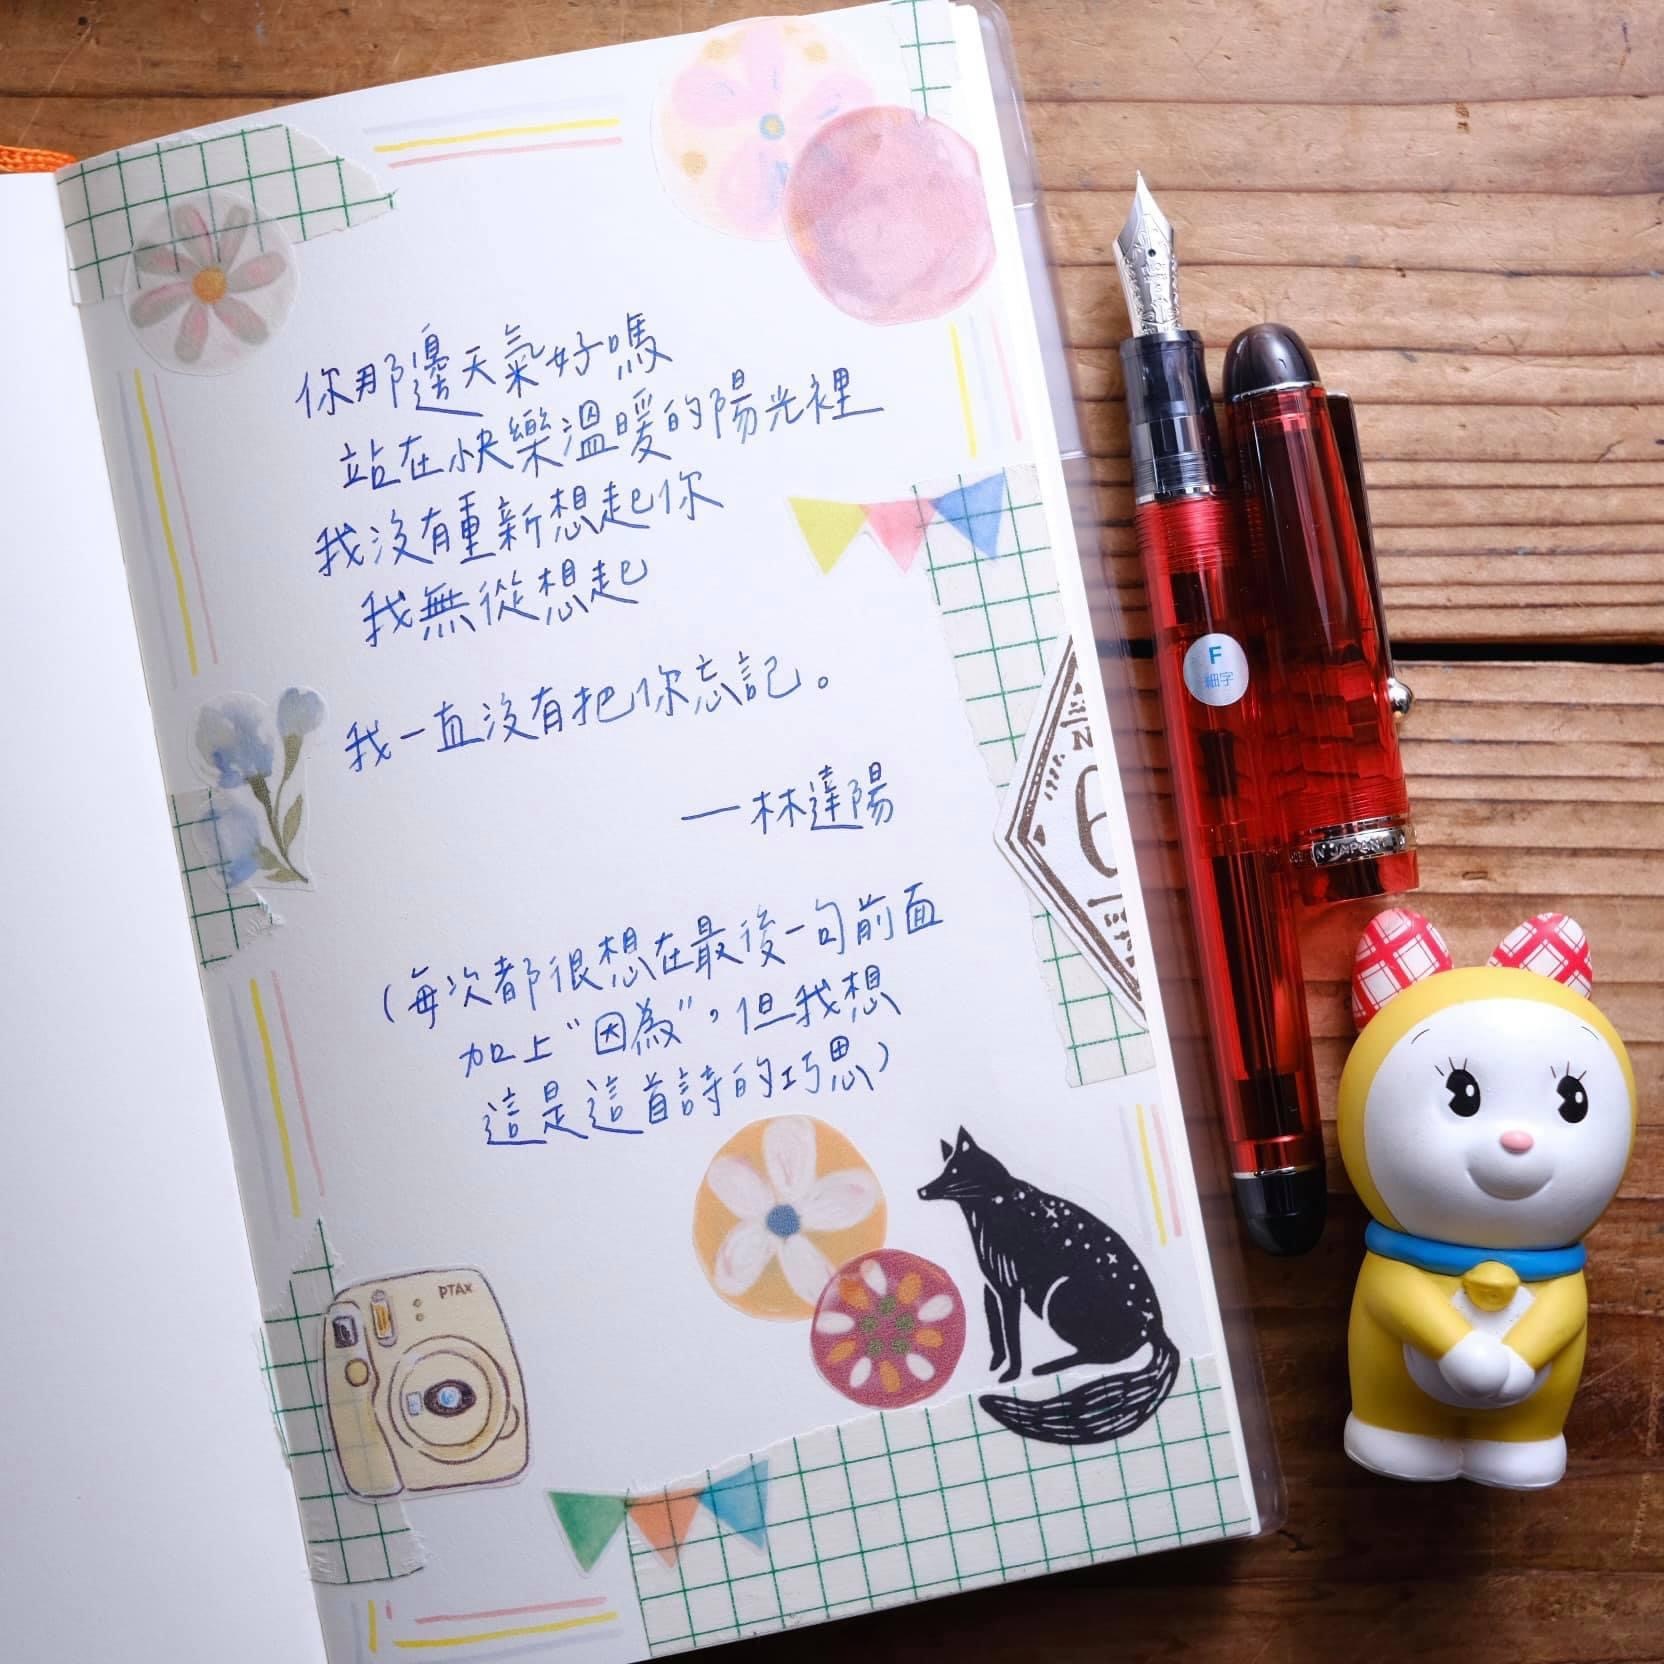 你那邊天氣好嗎
站在快樂溫暖的陽光裡
我沒有重新想起你
我無從想起
我一直沒有把你忘記。
—林達陽
(每次都很想在最後一句前面
加上“因為”,但我想
這是這首詩的巧思)
F
細字
IN JAPAN
N
6
PTAX